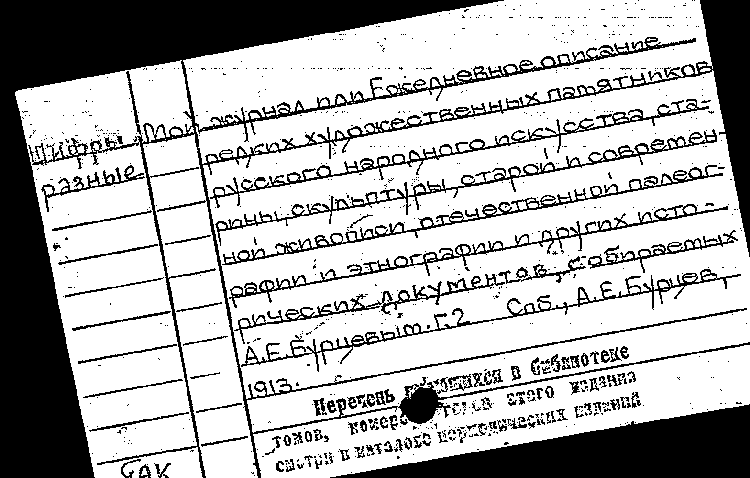 Шифры
разные
Мой журнал или Ежедневное описание
редких художественных памятников
русского народного искусства, ста-
рины, скульптуры, старой и современ-
ной живописи, отечественной палеог-
рафии и этнографии и других исто-
рических документов, собираемых
А.Е.Бурцевым. Г.2 Спб., А.Е.Бурцев,
1913.
Перечень имеющихся в библиотеке
томов, номеров этого издания
смотри в каталоге периодических изданий
БАК